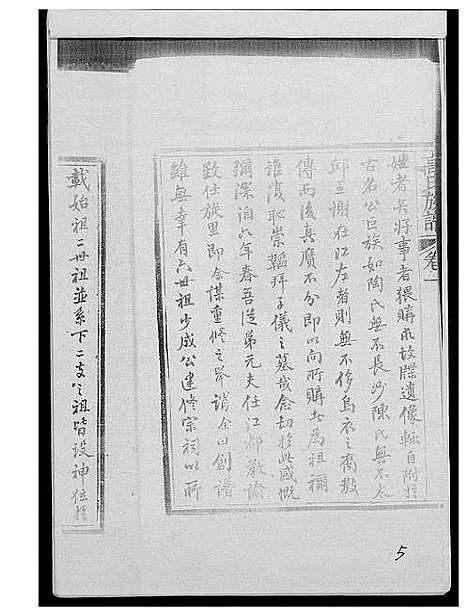 氏族譜 卷一
姓者矣好事者猥購求故牒遺像輒自附於
古名公巨族如陶氏無不長沙陳氏無不太
邱王謝在江左者則無不侈烏衣之裔數
傳而後真贋不分即以向所購者為祖禰
誰復恥崇韜拜子儀之墓哉念切於此感慨
彌深洎乙年春吾從弟元夫任江都教諭
致仕旋里即余謀重修之舉謂余曰創譜
雖無幸有六世祖少成公建修宗祠以所
載始祖二世祖並系下二支之祖皆設神位於
5